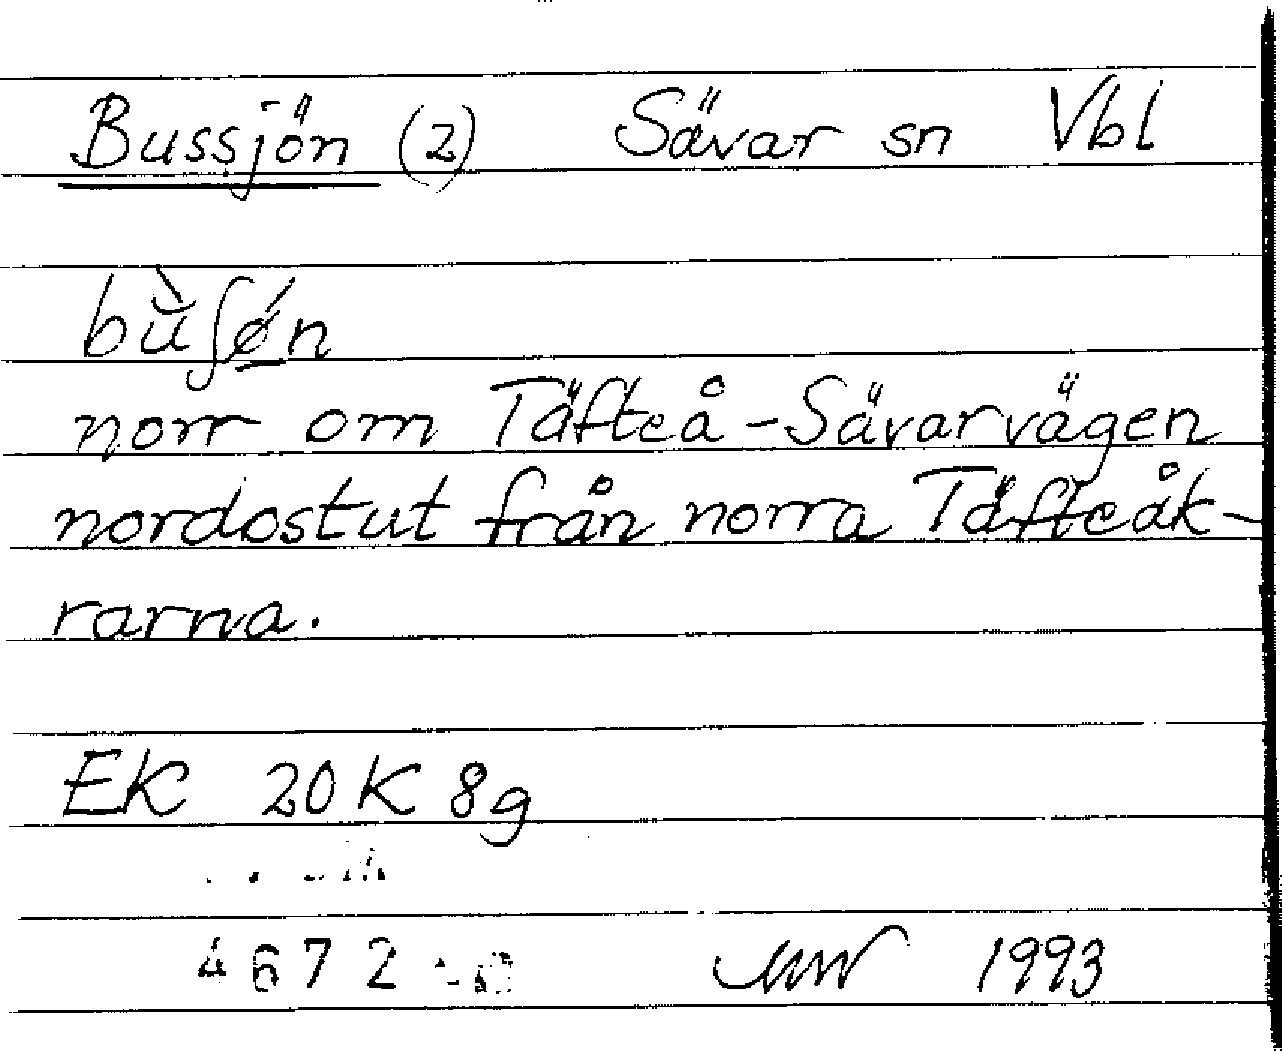 Bussjön (2) Sävar sn Vbl
bùʃǿn
norr om Täfteå-Sävarvägen
nordostut från norra Täfteåk-
rarna.
EK 20K 8g
4672
1993